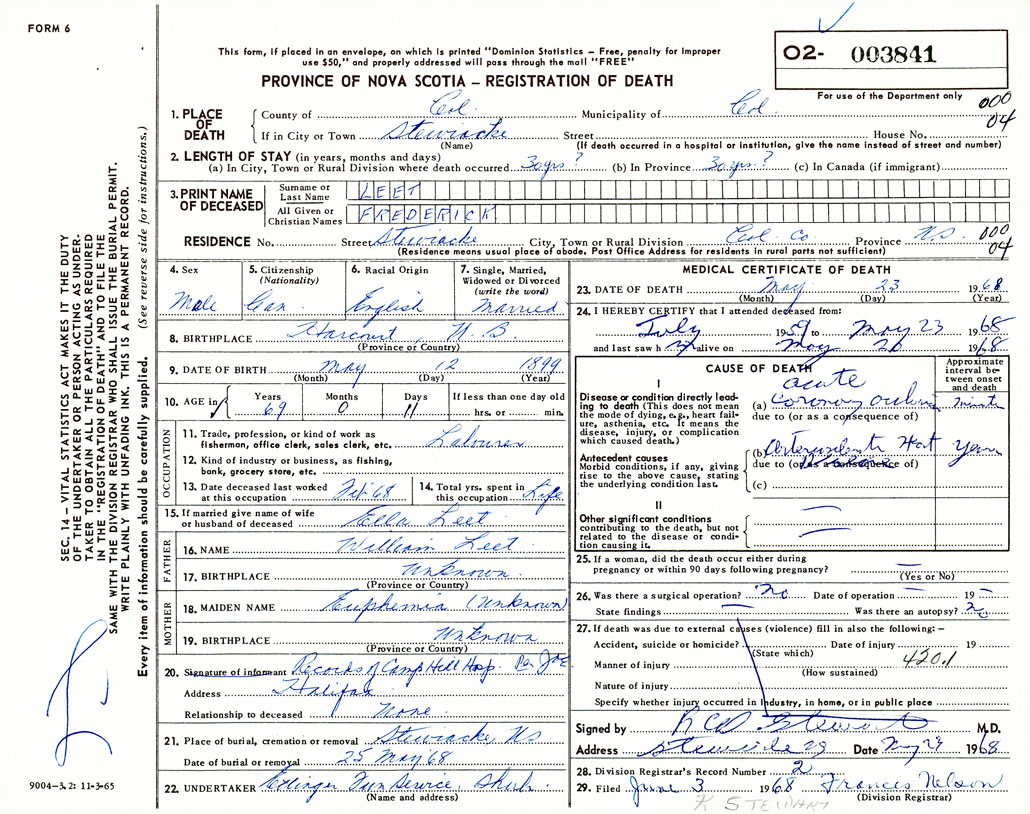 FORM 6
This form, if placed in an envelope, on which is printed "Dominion Statistics – Free, penalty for improper
use $50," and properly addressed will pass through the mail "FREE"
PROVINCE OF NOVA SCOTIA – REGISTRATION OF DEATH
O2- 003841
For use of the Department only
000
04
1. PLACE OF DEATH
County of Col. Municipality of Col.
If in City or Town Stewiacke Street House No.
(Name) (If death occurred in a hospital or institution, give the name instead of street and number)
2. LENGTH OF STAY (in years, months and days)
(a) In City, Town or Rural Division where death occurred 30 yrs? (b) In Province 30 yrs.? (c) In Canada (if immigrant)
3. PRINT NAME OF DECEASED
Surname or Last Name LEET
All Given or Christian Names FREDERICK
RESIDENCE No. Street Stewiacke City, Town or Rural Division Col. Co. Province N.S. 000
(Residence means usual place of abode. Post Office Address for residents in rural parts not sufficient) 04
4. Sex Male
5. Citizenship (Nationality) Can
6. Racial Origin English
7. Single, Married, Widowed or Divorced (write the word) Married
8. BIRTHPLACE Harcourt, N.B.
(Province or Country)
9. DATE OF BIRTH May 12 1899
(Month) (Day) (Year)
10. AGE in Years 69 Months 0 Days 11 If less than one day old hrs. or min.
OCCUPATION
11. Trade, profession, or kind of work as fisherman, office clerk, sales clerk, etc. Labourer
12. Kind of industry or business, as fishing, bank, grocery store, etc.
13. Date deceased last worked at this occupation Feb 68
14. Total yrs. spent in this occupation Life
15. If married give name of wife or husband of deceased Ella Leet
FATHER
16. NAME William Leet
17. BIRTHPLACE Unknown
(Province or Country)
MOTHER
18. MAIDEN NAME Euphemia (Unknown)
19. BIRTHPLACE Unknown
(Province or Country)
20. Signature of informant Records of Camp Hill Hosp. Per JOE
Address Halifax
Relationship to deceased None
21. Place of burial, cremation or removal Stewiacke NS
Date of burial or removal 25 May 68
22. UNDERTAKER Ettinger Fun Service, Shub.
(Name and address)
MEDICAL CERTIFICATE OF DEATH
23. DATE OF DEATH May 23 1968
(Month) (Day) (Year)
24. I HEREBY CERTIFY that I attended deceased from:
July 1959 to May 23 1968
and last saw h alive on May 20 1968
CAUSE OF DEATH
Approximate interval between onset and death
I
Disease or condition directly leading to death (This does not mean the mode of dying, e.g., heart failure, asthenia, etc. It means the disease, injury, or complication which caused death.)
acute
(a) Coronary minute
due to (or as a consequence of)
Antecedent causes
Morbid conditions, if any, giving rise to the above cause, stating the underlying condition last.
(b) Years
due to (or as a consequence of)
(c)
II
Other significant conditions contributing to the death, but not related to the disease or condition causing it.
25. If a woman, did the death occur either during pregnancy or within 90 days following pregnancy?
(Yes or No)
26. Was there a surgical operation? No Date of operation 19
State findings Was there an autopsy? No
27. If death was due to external causes (violence) fill in also the following: –
Accident, suicide or homicide? Date of injury 19
(State which)
Manner of injury 420.1
(How sustained)
Nature of injury
Specify whether injury occurred in Industry, in home, or in public place
Signed by Stewart M.D.
Address Date May 1968
28. Division Registrar's Record Number 2
29. Filed June 3 1968 Frances Nelson
(Division Registrar)
K. STEWART
SEC. 14 – VITAL STATISTICS ACT MAKES IT THE DUTY
OF THE UNDERTAKER OR PERSON ACTING AS UNDER-
TAKER TO OBTAIN ALL THE PARTICULARS REQUIRED
IN THE "REGISTRATION OF DEATH" AND TO FILE THE
SAME WITH THE DIVISION REGISTRAR WHO SHALL ISSUE THE BURIAL PERMIT.
WRITE PLAINLY WITH UNFADING INK. THIS IS A PERMANENT RECORD.
Every item of information should be carefully supplied. (See reverse side for instructions.)
9004–3.2: 11-3-65